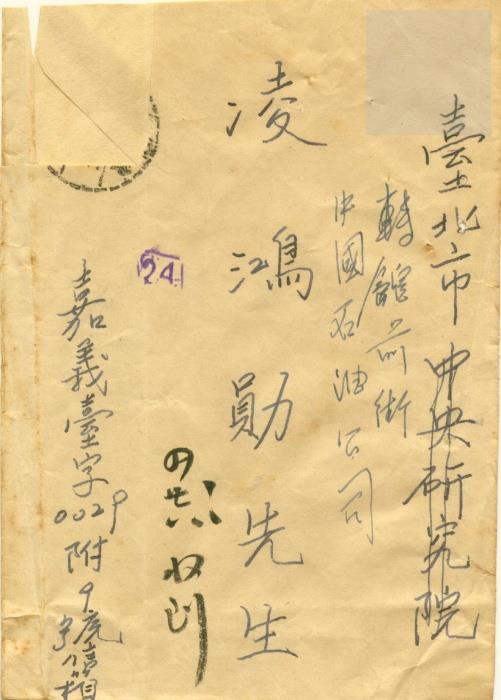 臺北市中央研究院
轉館前街
中國石油公司
凌鴻勛先生
24
嘉義臺字0029附9號信箱